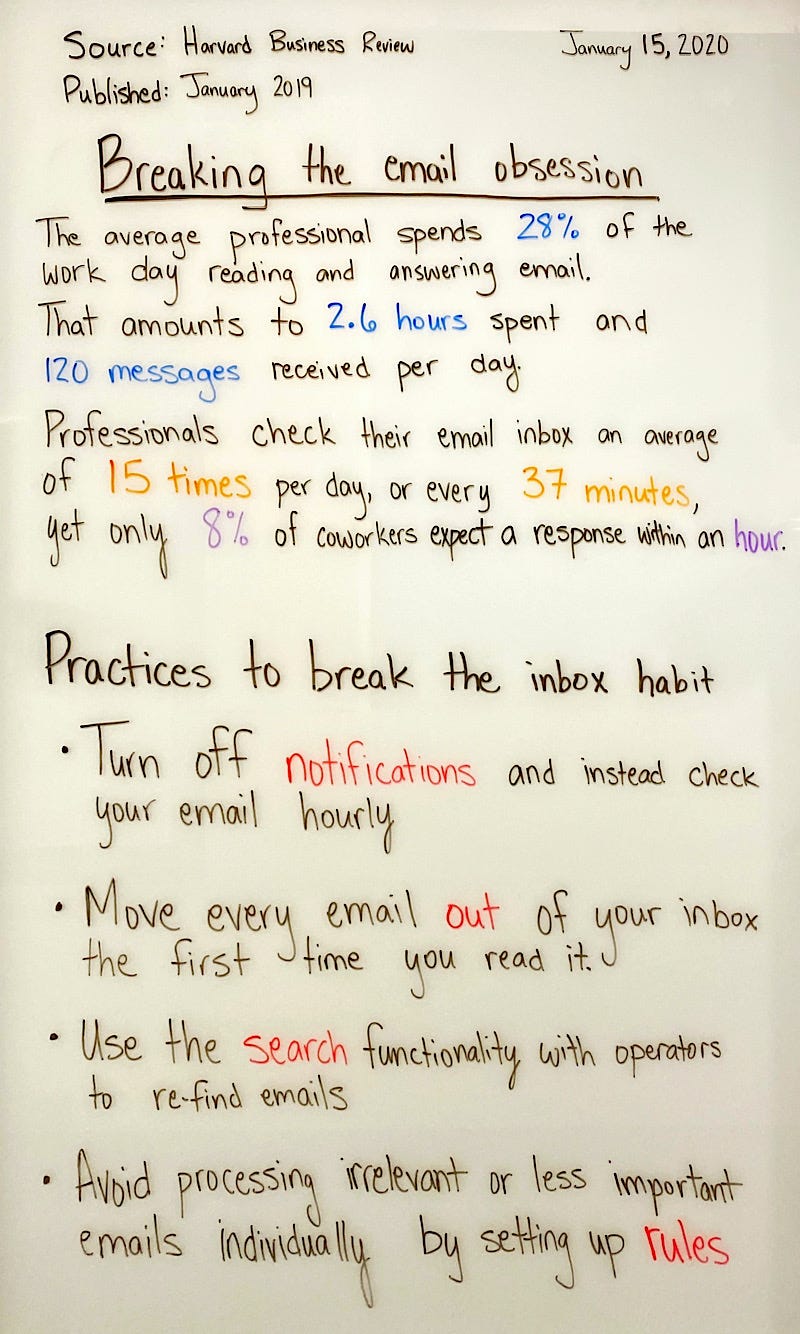 Source: Harvard Business Review
January 15, 2020
Published: January 2019
Breaking the email obsession
The average professional spends 28% of the
work day reading and answering email.
That amounts to 2.6 hours spent and
120 messages received per day.
Professionals check their email inbox an average
of 15 times per day, or every 37 minutes,
yet only 8% of coworkers expect a response within an hour.
Practices to break the inbox habit
• Turn off notifications and instead check
your email hourly
• Move every email out of your inbox
the first time you read it.
• Use the search functionality with operators
to re-find emails
• Avoid processing irrelevant or less important
emails individually by setting up rules